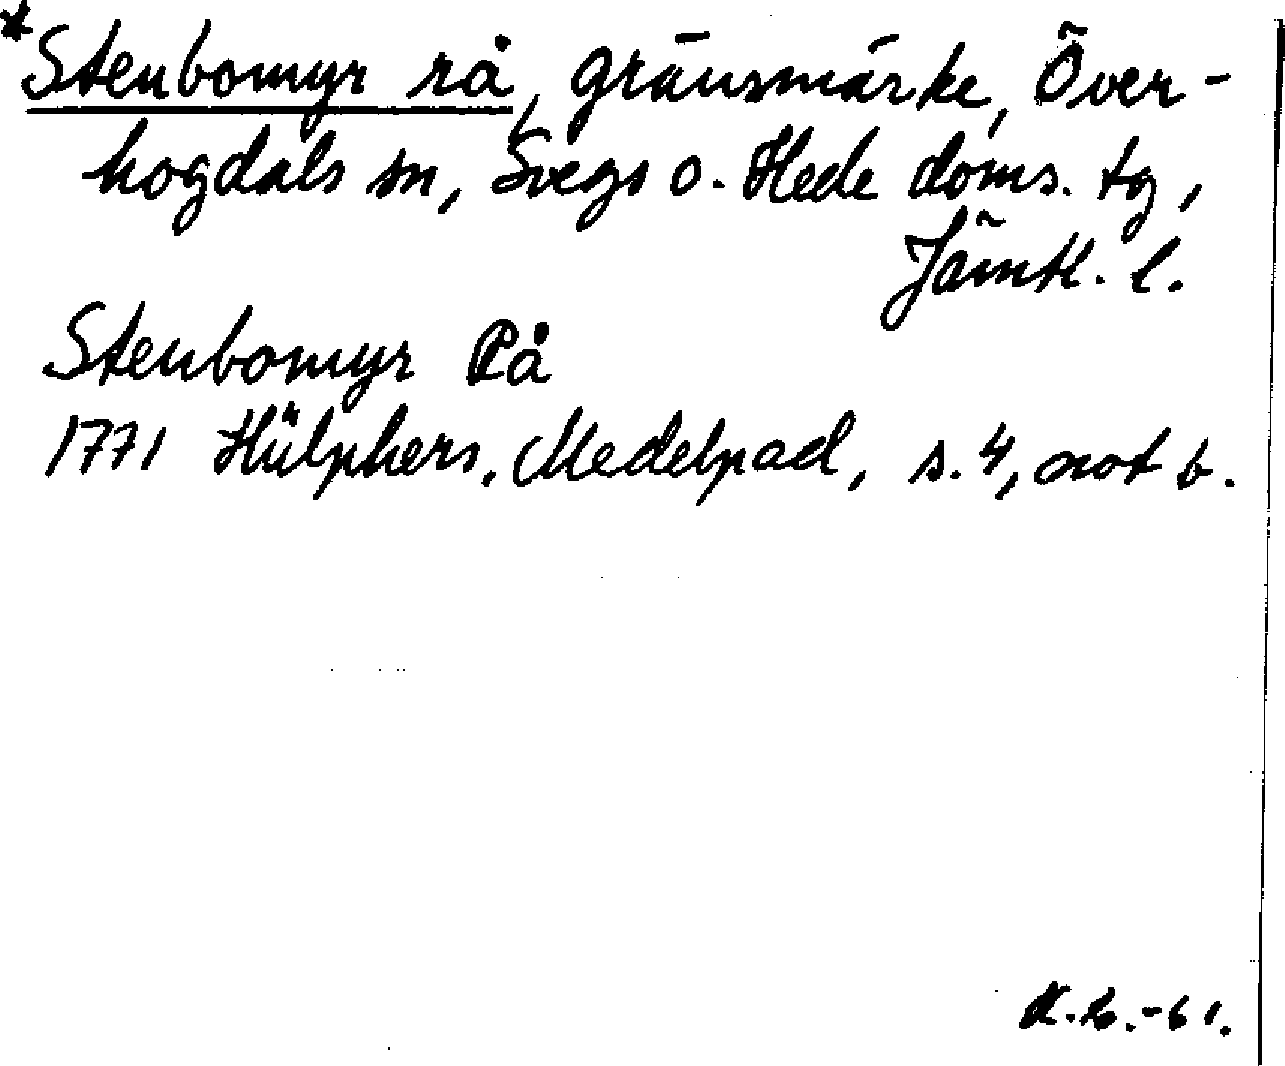 *Stenbomyr rå, gränsmärke, Över-
hogdals sn, Svegs o. Hede doms. tg,
Jämtl. l.
Stenbomyr Rå
1771 Hülphers, Medelpad, s. 4, not b.
-61.